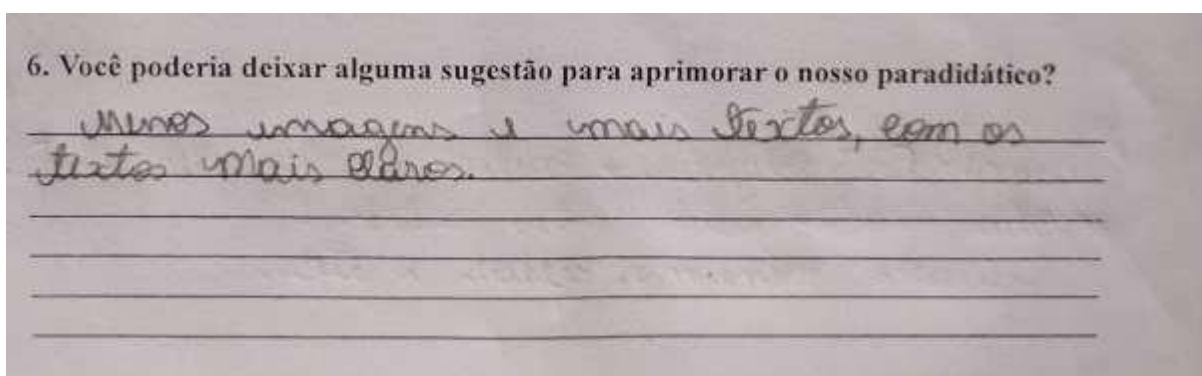 6. Você poderia deixar alguma sugestão para aprimorar o nosso paradidático?
Menos imagens e mais textos, com os
textos mais claros.